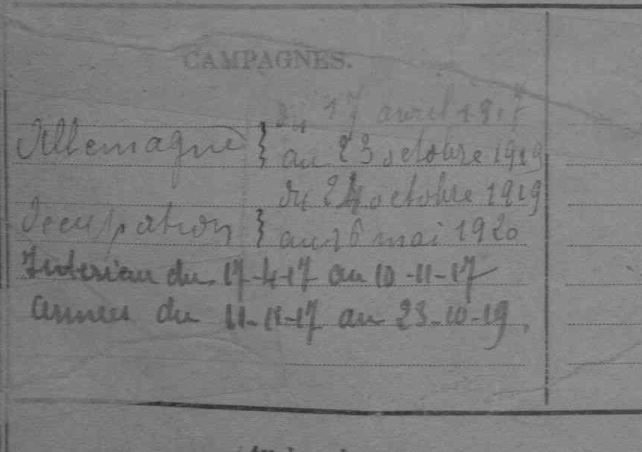 CAMPAGNES.
du 17 avril 1917
Allemagne } au 23 octobre 1919
du 24 octobre 1919
Occupation } au 16 mai 1920
Intérieur du 17-4-17 au 10-11-17
Armées du 11-11-17 au 23-10-19.